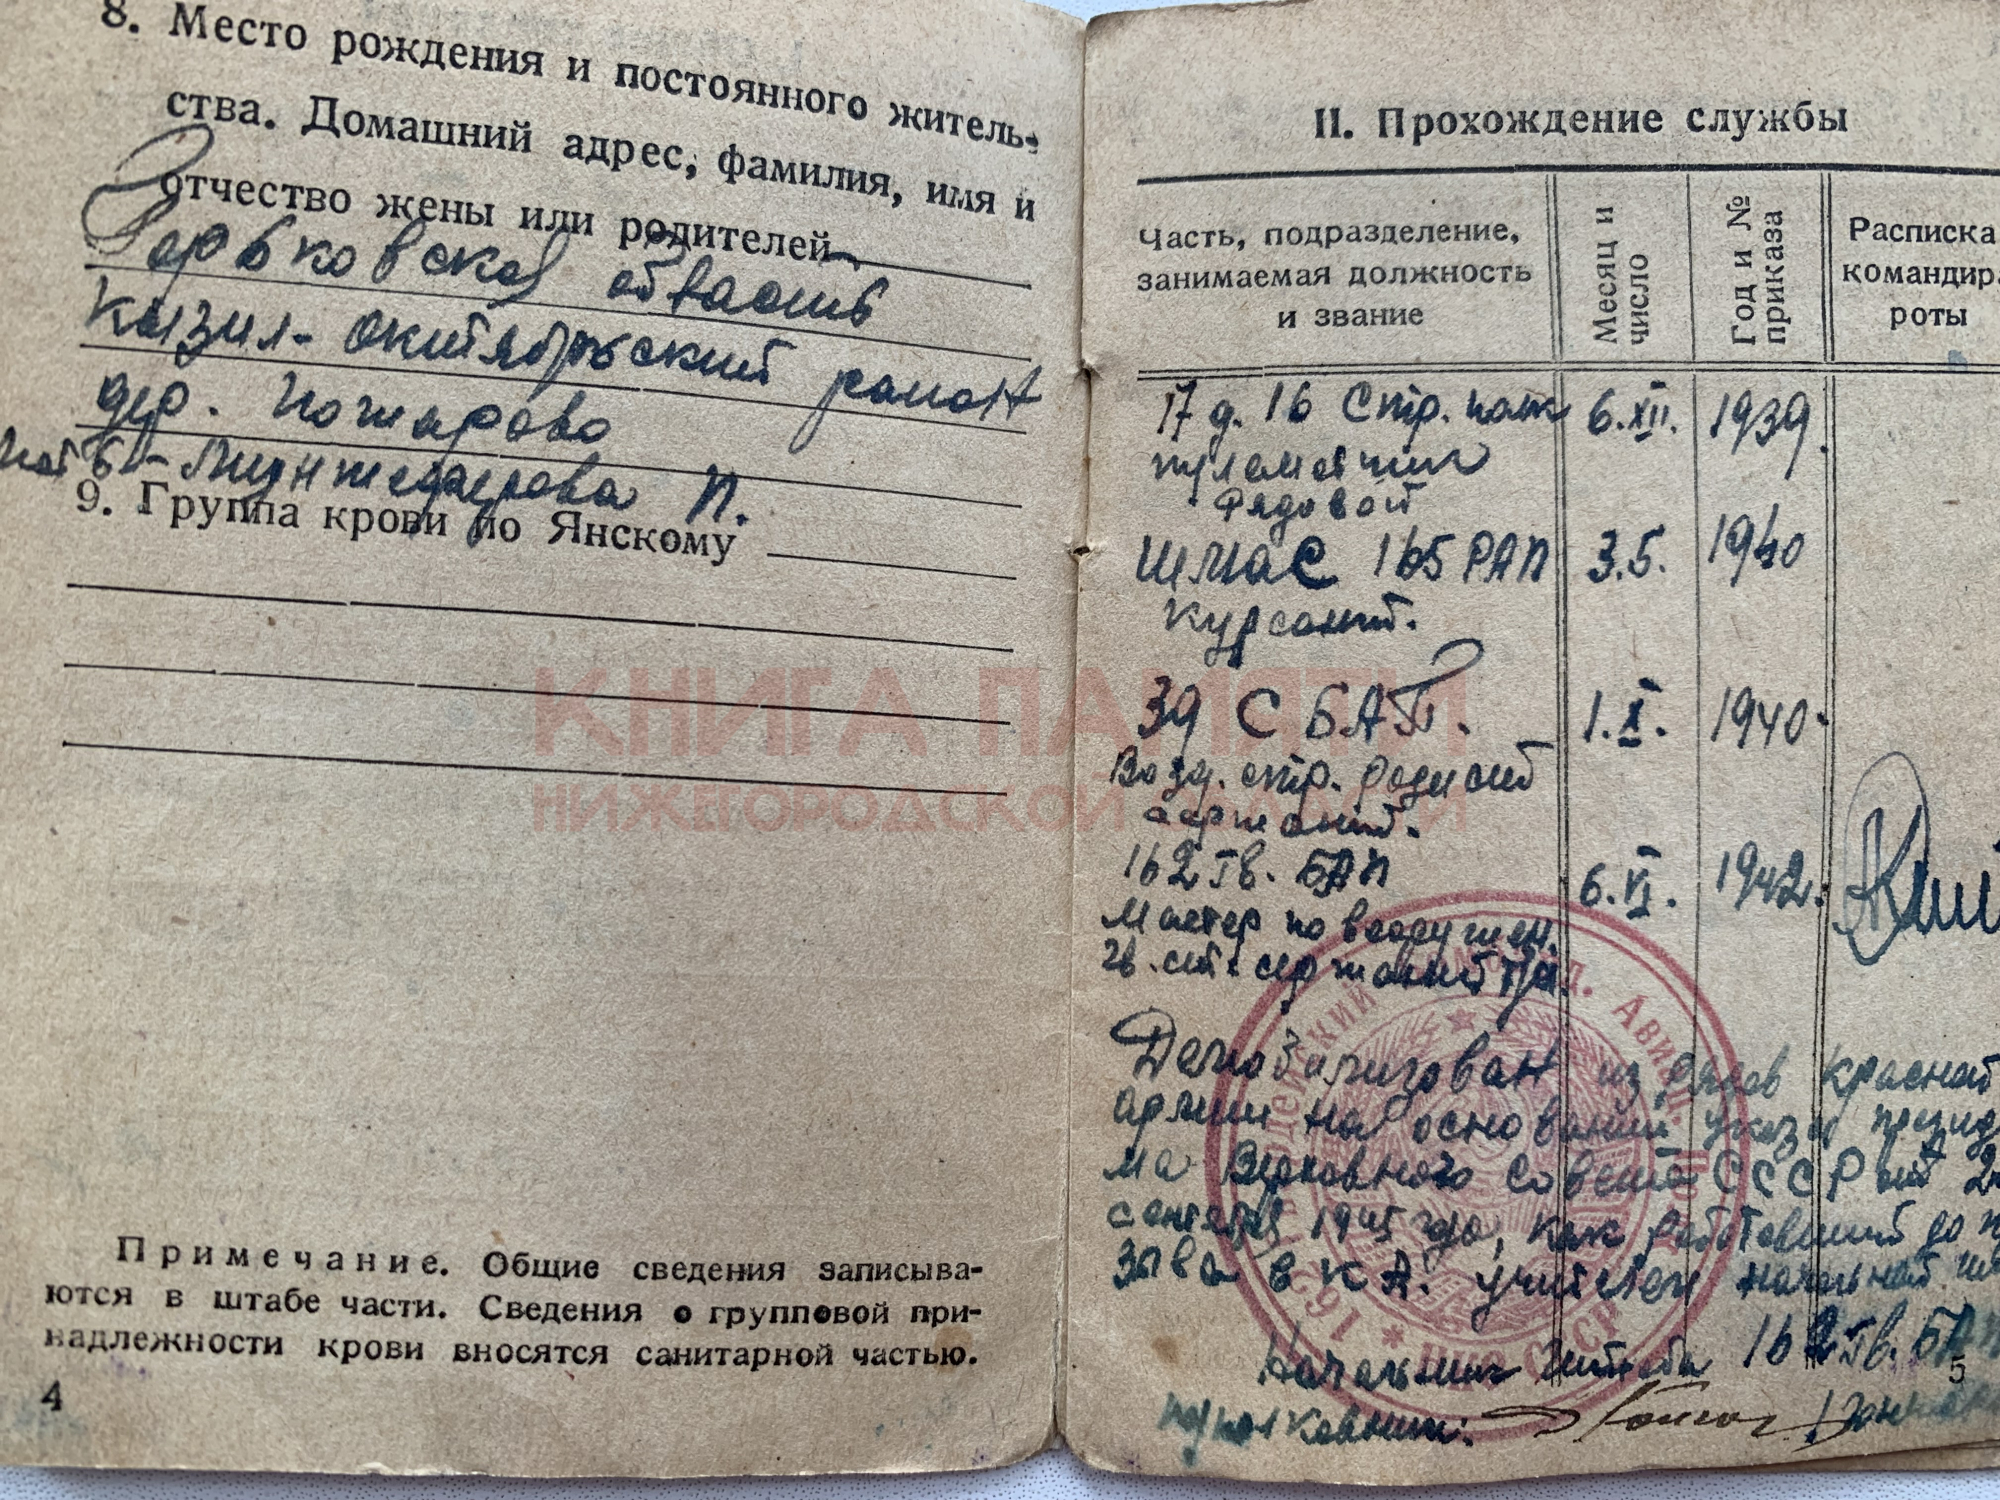 8. Место рождения и постоянного житель-
ства. Домашний адрес, фамилия, имя и
отчество жены или родителей
Горьковская область
Кызил-октябрьский район
дер. Пошарово
9. Группа крови по Янскому
Примечание. Общие сведения записыва-
ются в штабе части. Сведения о групповой при-
надлежности крови вносятся санитарной частью.
4
II. Прохождение службы
Часть, подразделение, занимаемая должность и звание
Месяц и число
Год и № приказа
Расписка командир. роты
17 д. 16 Стр. полк 6.XII. 1939.
пулеметчик
Рядовой
ШМАС 165 РАП 3.5. 1940
Курсант.
39 СБАП. 1.X. 1940.
Возд. стр. радист
сержант.
162 гв. БАП 6.VI. 1942.
Мастер по вооружен.
гв. ст. сержант
Демобилизован из рядов красной
армии на основании указа
ма Верховного Совета СССР от
сентября 1945 года, как работавший до
зыва в К А. учителем начальной
Начальник штаба 162 гв. БАП
подполковник:
5
КНИГА ПАМЯТИ
НИЖЕГОРОДСКОЙ ОБЛАСТИ
НКО СССР